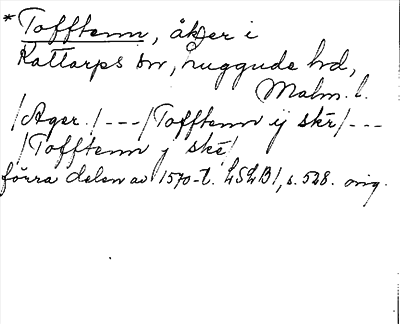 * Tofftenn, åker i
Kattarps sn, Luggude hd,
Malm. l.
/Ager./ --- /Tofftenn ij skr/ ---
/Tofftenn j ske/
förra delen av 1570-t. LSLB 1, s. 528. orig.